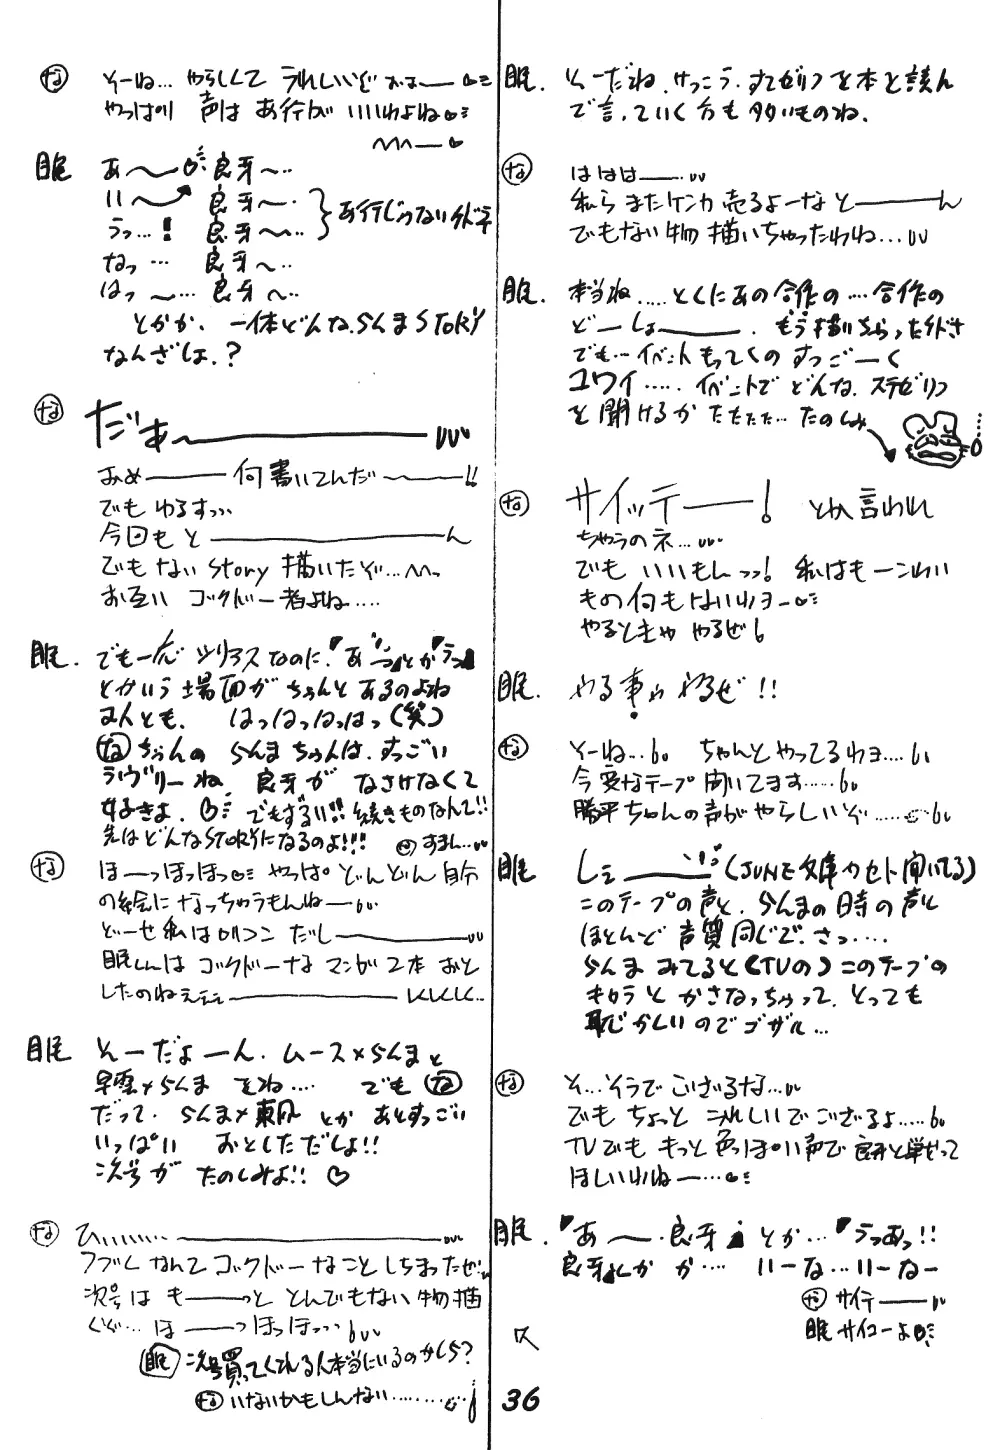 眠. そーだね. けっこう. すてゼリフを本と読ん
で言っていく方も多いものね.
な ははは――…
私らまたケンカ売るよーなと――――ん
でもない物描いちゃったわね…
眠. 本当ね……とくにあの合作の…合作の
どーしょ――――. もう描いちゃったけどさ
でも…イベントもってくのすっごーく
コワイ…… イベントでどんな. ステゼリフ
を聞けるかたたたた…たのしみ
な サイッテ――! とか言われ
ちゃうのネ…
でも いいもんっっ! 私はもーこわい
もの何もないわヨー
やるときゃ やるぜ
眠. やる事ゃやるぜ!!
な そーね… ちゃんとやってるわヨ…
今変なテープ聞いてます……
勝平ちゃんの声がやらしいぞ……
眠 しー――――(JUNE文庫カセット聞いてる)
このテープの声と. らんまの時の声と
ほとんど声質同じで. さっ….
らんまみてると(TVの)このテープの
キャラとかさなっちゃって. とっても
恥じかしいのでゴザル…
な そ…そうでござるな…
でも ちょっと うれしいでござるよ……
TVでも もっと色っぽい声で良牙と戦って
ほしいわねー…
眠. 『あ〜・良牙』とか…『うっあっ!!
良牙』とかが… いーな…いーなー
な サイテ――
眠 サイコーよ♡
な そーね… やらしくて うれしいぞ おほ――♡
やっぱり 声は あ行が いいわよね♡
眠 あ〜♡ 良牙〜…
い〜 良牙〜・
うっ…! 良牙〜…
あ行じゃないけどネ
なっ … 良牙〜…
はっ 〜… 良牙〜…
とかか. 一体どんならんまSTORY
なんざしょ.?
な だぁ〜――――
あめ――― 何書いてんだ〜――!!
でも ゆるすっ…
今回も と――――――ん
でもない Story 描いたぞ…
お互い ゴックドー者よね….
眠. でも一応 シリアスなのに.『あっ』とか『うっ』
とかいう場面がちゃんとあるのよね
2人とも. はっはっはっはっ(笑)
なちゃんの らんまちゃんは. すっごい
ラヴリーね 良牙が なさけなくて
好きよ. ♡ でもずるい!! 続きものなんて!!
先はどんなSTORYになるのよ!!! なすまん…
な ほーっほっほっ♡ やっぱ どんどん自分
の絵になっちゃうもんねー
どーせ私はロリコン だし――――
眠しんは ゴックドーな マンガ2本 おと
したのねぇぇぇ――――
眠 そーだよーん. ムース×らんまと
早雲×らんま をね…. でも な
だって. らんま×東風 とか あとすっごい
いっぱい おとしただしょ!!
次号が たのしみよ!! ♡
な ひぃぃぃぃぃ…――――
ワブしなんて ゴックドーなことしちまったぜ!
次号は もー――っと とんでもない物描
くぞ… ほ――っほっほっ…
眠 次号買ってくれる人本当にいるのかしら?
な いないかもしんない………
36